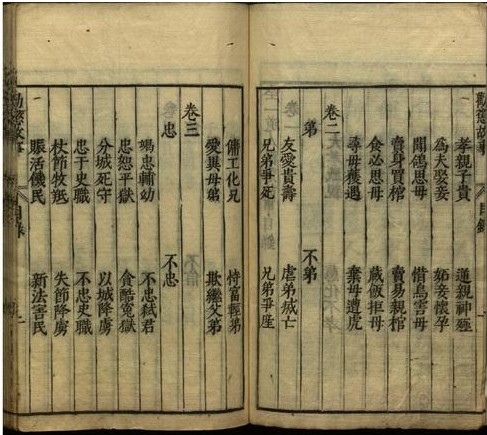 勸懲故事 目錄
孝親子貴 逆親神殛
為夫娶妾 妬妾懷孕
聞鴿思母 借鳥害母
賣身買棺 賣易親棺
食必思母 藏飯拒母
尋母獲遇 棄母遭虎
卷二
弟 不弟
友愛貴壽 虐弟威亡
兄弟爭死 兄弟爭產
傭工化兄 恃富輕弟
愛異母弟 欺繼父弟
卷三
忠 不忠
竭忠輔幼 不忠弒君
忠恕平獄 貪酷冤獄
分城死守 以城降虜
忠于史職 不忠史職
杖節牧羝 失節降虜
賑活饑民 新法害民
勸懲故事 目錄